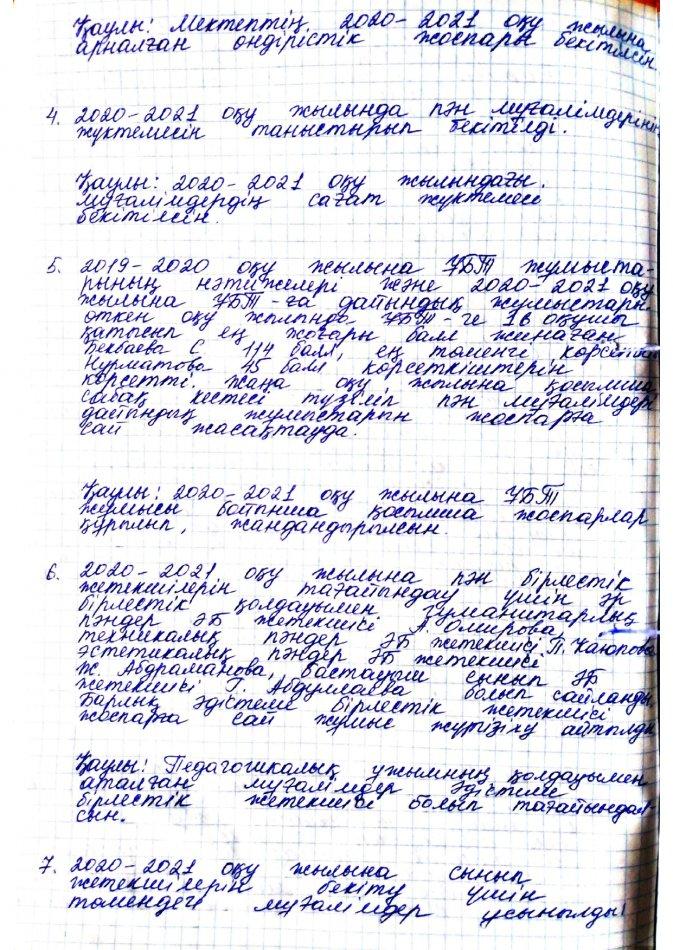 Қаулы: Мектептің 2020-2021 оқу жылына
арналған өндірістік жоспары бекітілсін
4. 2020-2021 оқу жылында пән мұғалімдерінің
жүктемесін таныстырып бекітілді.
Қаулы: 2020-2021 оқу жылындағы
мұғалімдердің сағат жүктемесі
бекітілсін.
5. 2019-2020 оқу жылына ҰБТ жұмыста-
рының нәтижелері және 2020-2021 оқу
жылына ҰБТ-ға дайындық жұмыстары
өткен оқу жылында ҰБТ-ге 16 оқушы
қатысып ең жоғары балл жинаған
Бекбаева С 114 балл, ең төменгі
Нурматова 45 балл көрсеткіштерін
көрсетті. Жаңа оқу жылына қосымша
сабақ кестесі түзіліп пән мұғалімдері
дайындық жұмыстарын жоспарға
сай жасақтауда.
Қаулы: 2020-2021 оқу жылына ҰБТ
жұмысы бойынша қосымша жоспарлар
құрылып, жандандырылсын.
6. 2020-2021 оқу жылына пән бірлестік
жетекшілерін тағайындау үшін әр
бірлестік қолдауымен гуманитарлық
пәндер ӘБ жетекшісі А. Омирова,
техникалық пәндер ӘБ жетекшісі П. Каюпова
эстетикалық пәндер ӘБ жетекшісі
Ж. Абдраманова, бастауыш сынып ӘБ
жетекшісі Г. Абдуллаева болып сайланды
Барлық әдістеме бірлестік жетекшісі
жоспарға сай жұмыс жүргізіу айтылды
Қаулы: Педагогикалық ұжымның қолдауымен
аталған мұғалімдер әдістеме
бірлестік жетекшісі болып тағайындал
сын.
7. 2020-2021 оқу жылына сынып
жетекшілерін бекіту үшін
төмендегі мұғалімдер ұсынылды